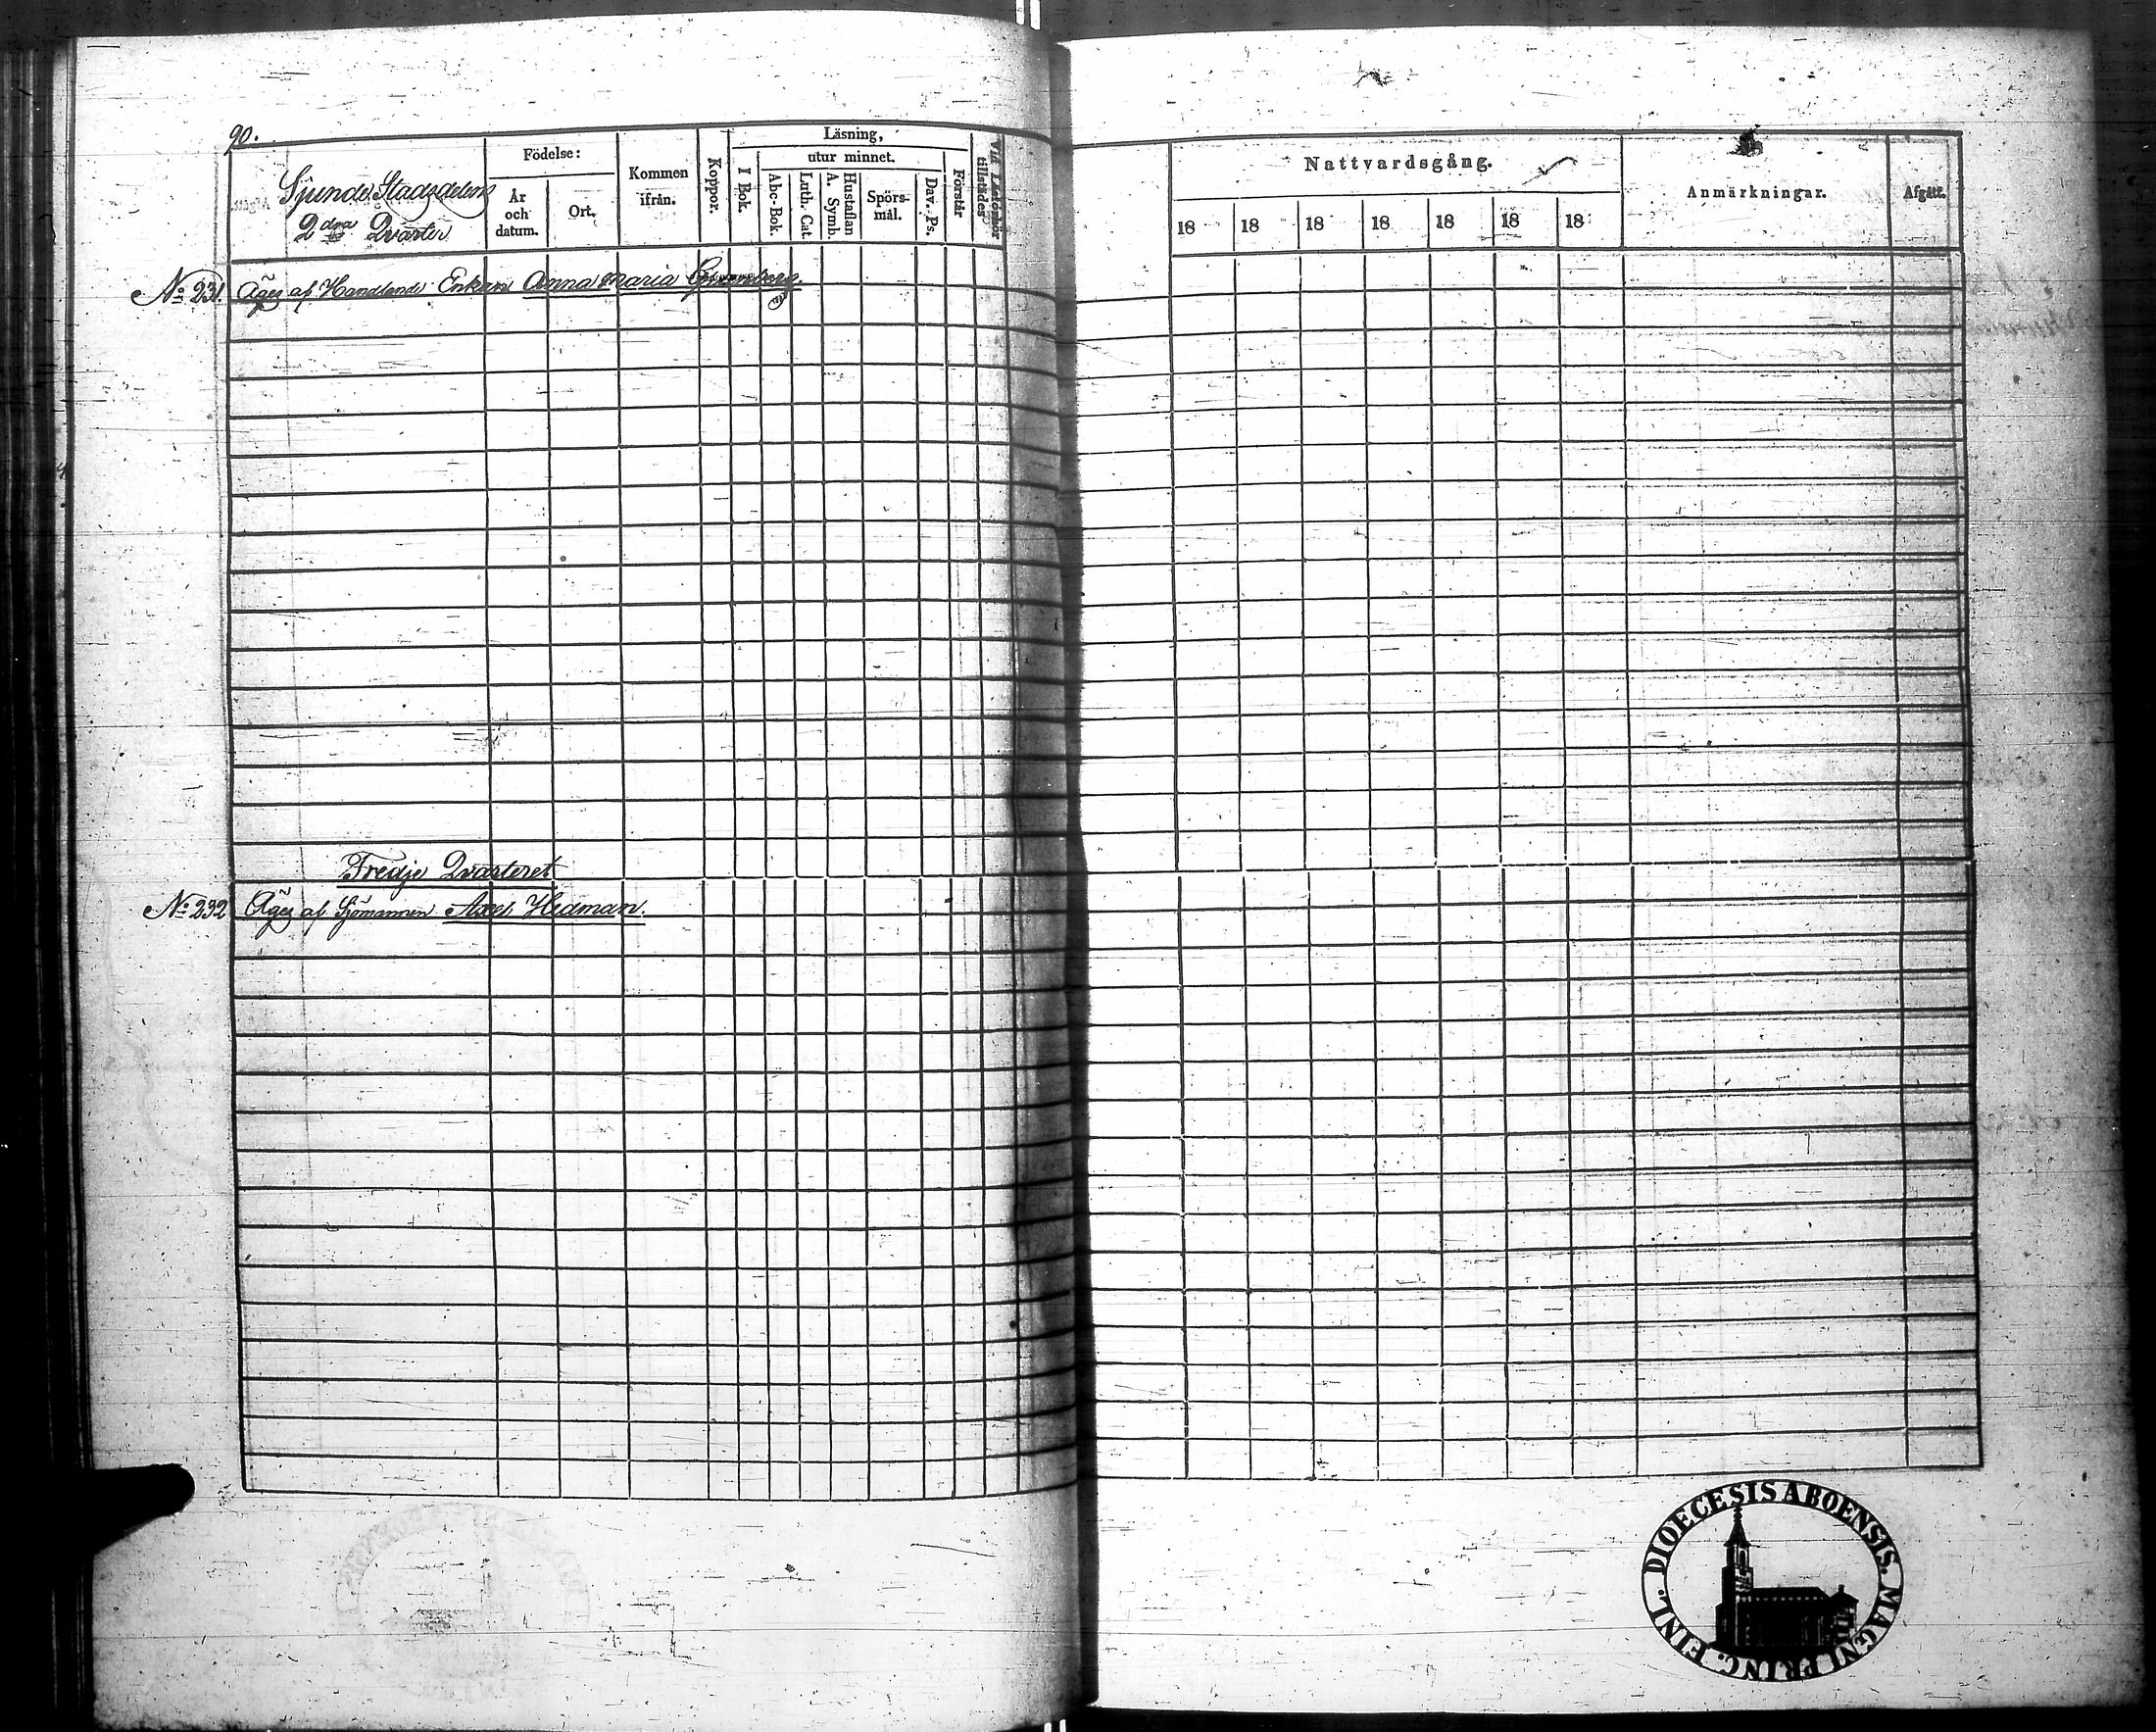 90.
Sjunde Stadsdelens
2dra Qvarter
Födelse:
År
och
datum.
Ort.
Kommen
ifrån.
Koppor.
Läsning,
I Bok.
utur minnet.
Abc-Bok.
Luth. Cat.
Hustaflan
A. Symb.
Spörs-
mål.
Dav. Ps.
Förstår
Vid Läsförhör
tillstädes
Nattvardsgång.
18 18 18 18 18 18 18
Anmärkningar.
Afgått.
No 231. Äges af Handlands Enkan Anna Maria
Tredje Qvarteret
No 232 Äges af Sjömannen Axel Hedman.
DIOECESIS ABOENSIS. MAGNI PRINC. FINL.